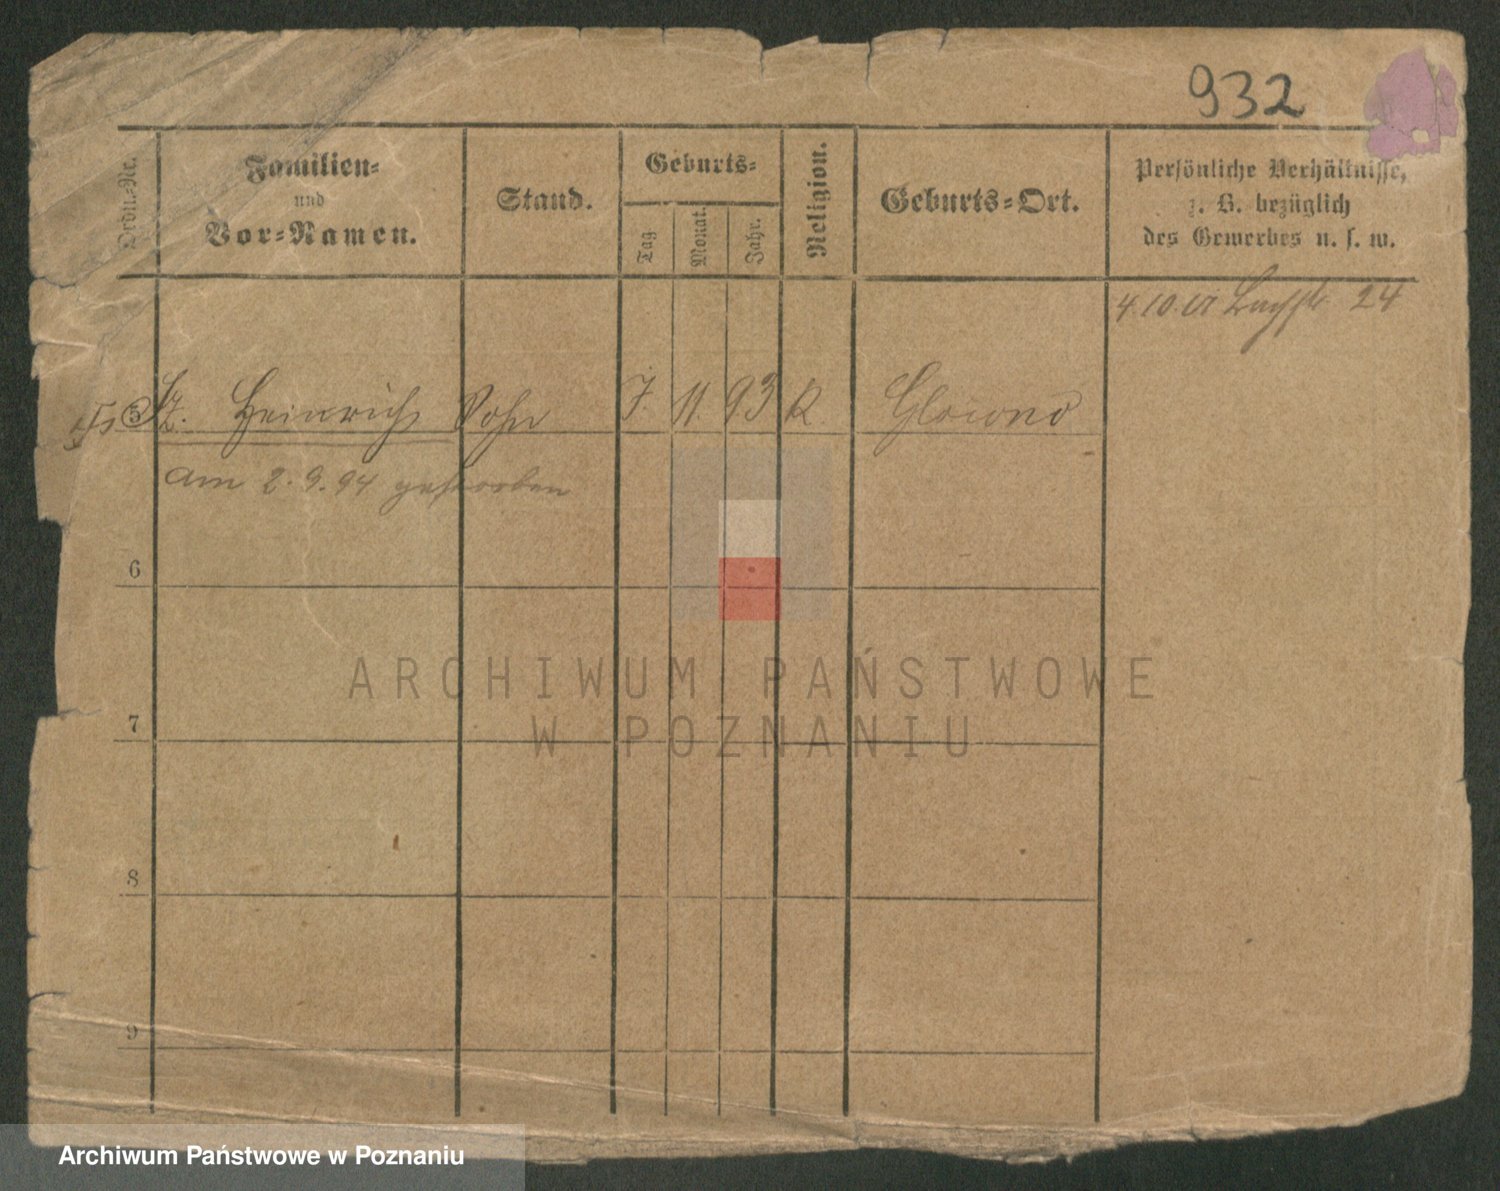 932
Ordn.-Nr.
Familien-
und
Vor-Namen.
Stand.
Geburts-
Tag
Monat.
Jahr.
Religion.
Geburts-Ort.
Persönliche Verhältnisse,
z. B. bezüglich
des Gewerbes u. s. w.
4.10. 24
5 Heinrich Sohn 7. 11 93 K.
am 2.9.94 gestorben
6
7
8
9
ARCHIWUM PAŃSTWOWE
W POZNANIU
Archiwum Państwowe w Poznaniu